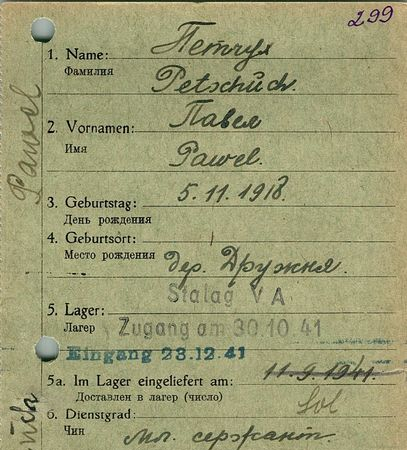 299
1. Name: Петчух
Фамилия Petschuch.
2. Vornamen: Павел
Имя Pawel.
3. Geburtstag: 5.11.1918.
День рождения
4. Geburtsort:
Место рождения дер. Дружня.
Stalag V A
5. Lager:
Лагерь Zugang am 30.10.41
Eingang 23.12.41
5a. Im Lager eingeliefert am: 11.9.1941.
Доставлен в лагерь (число) Sol
6. Dienstgrad:
Чин мл. сержант.
Pawel